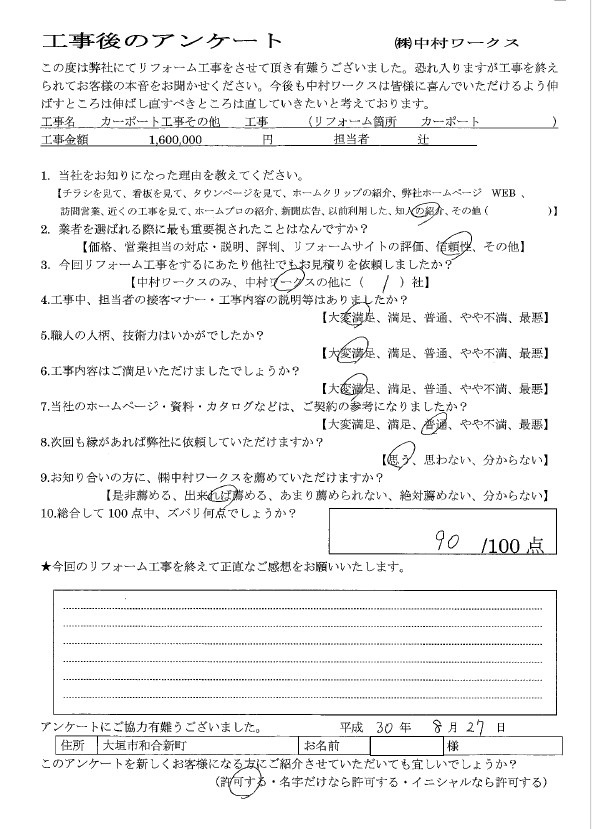 工事後のアンケート ㈱中村ワークス
この度は弊社にてリフォーム工事をさせて頂き有難うございました。恐れ入りますが工事を終え
られてお客様の本音をお聞かせください。今後も中村ワークスは皆様に喜んでいただけるよう伸
ばすところは伸ばし直すべきところは直していきたいと考えております。
工事名 カーポート工事その他 工事 (リフォーム箇所 カーポート )
工事金額 1,600,000 円 担当者 辻
1. 当社をお知りになった理由を教えてください。
【チラシを見て、看板を見て、タウンページを見て、ホームクリップの紹介、弊社ホームページ WEB 、
訪問営業、近くの工事を見て、ホームプロの紹介、新聞広告、以前利用した、知人の紹介、その他( )】
2. 業者を選ばれる際に最も重要視されたことはなんですか？
【価格、営業担当の対応・説明、評判、リフォームサイトの評価、信頼性、その他】
3. 今回リフォーム工事をするにあたり他社でもお見積りを依頼しましたか？
【中村ワークスのみ、中村ワークスの他に ( 1 ) 社】
4.工事中、担当者の接客マナー・工事内容の説明等はありましたか？
【大変満足、満足、普通、やや不満、最悪】
5.職人の人柄、技術力はいかがでしたか？
【大変満足、満足、普通、やや不満、最悪】
6.工事内容はご満足いただけましたでしょうか？
【大変満足、満足、普通、やや不満、最悪】
7.当社のホームページ・資料・カタログなどは、ご契約の参考になりましたか？
【大変満足、満足、普通、やや不満、最悪】
8.次回も縁があれば弊社に依頼していただけますか？
【思う、思わない、分からない】
9.お知り合いの方に、㈱中村ワークスを薦めていただけますか？
【是非薦める、出来れば薦める、あまり薦められない、絶対薦めない、分からない】
10.総合して 100 点中、ズバリ何点でしょうか？
90 /100 点
★今回のリフォーム工事を終えて正直なご感想をお願いいたします。
アンケートにご協力有難うございました。 平成 30 年 8 月 27 日
住所 大垣市和合新町 お名前 様
このアンケートを新しくお客様になる方にご紹介させていただいても宜しいでしょうか？
(許可する・名字だけなら許可する・イニシャルなら許可する)